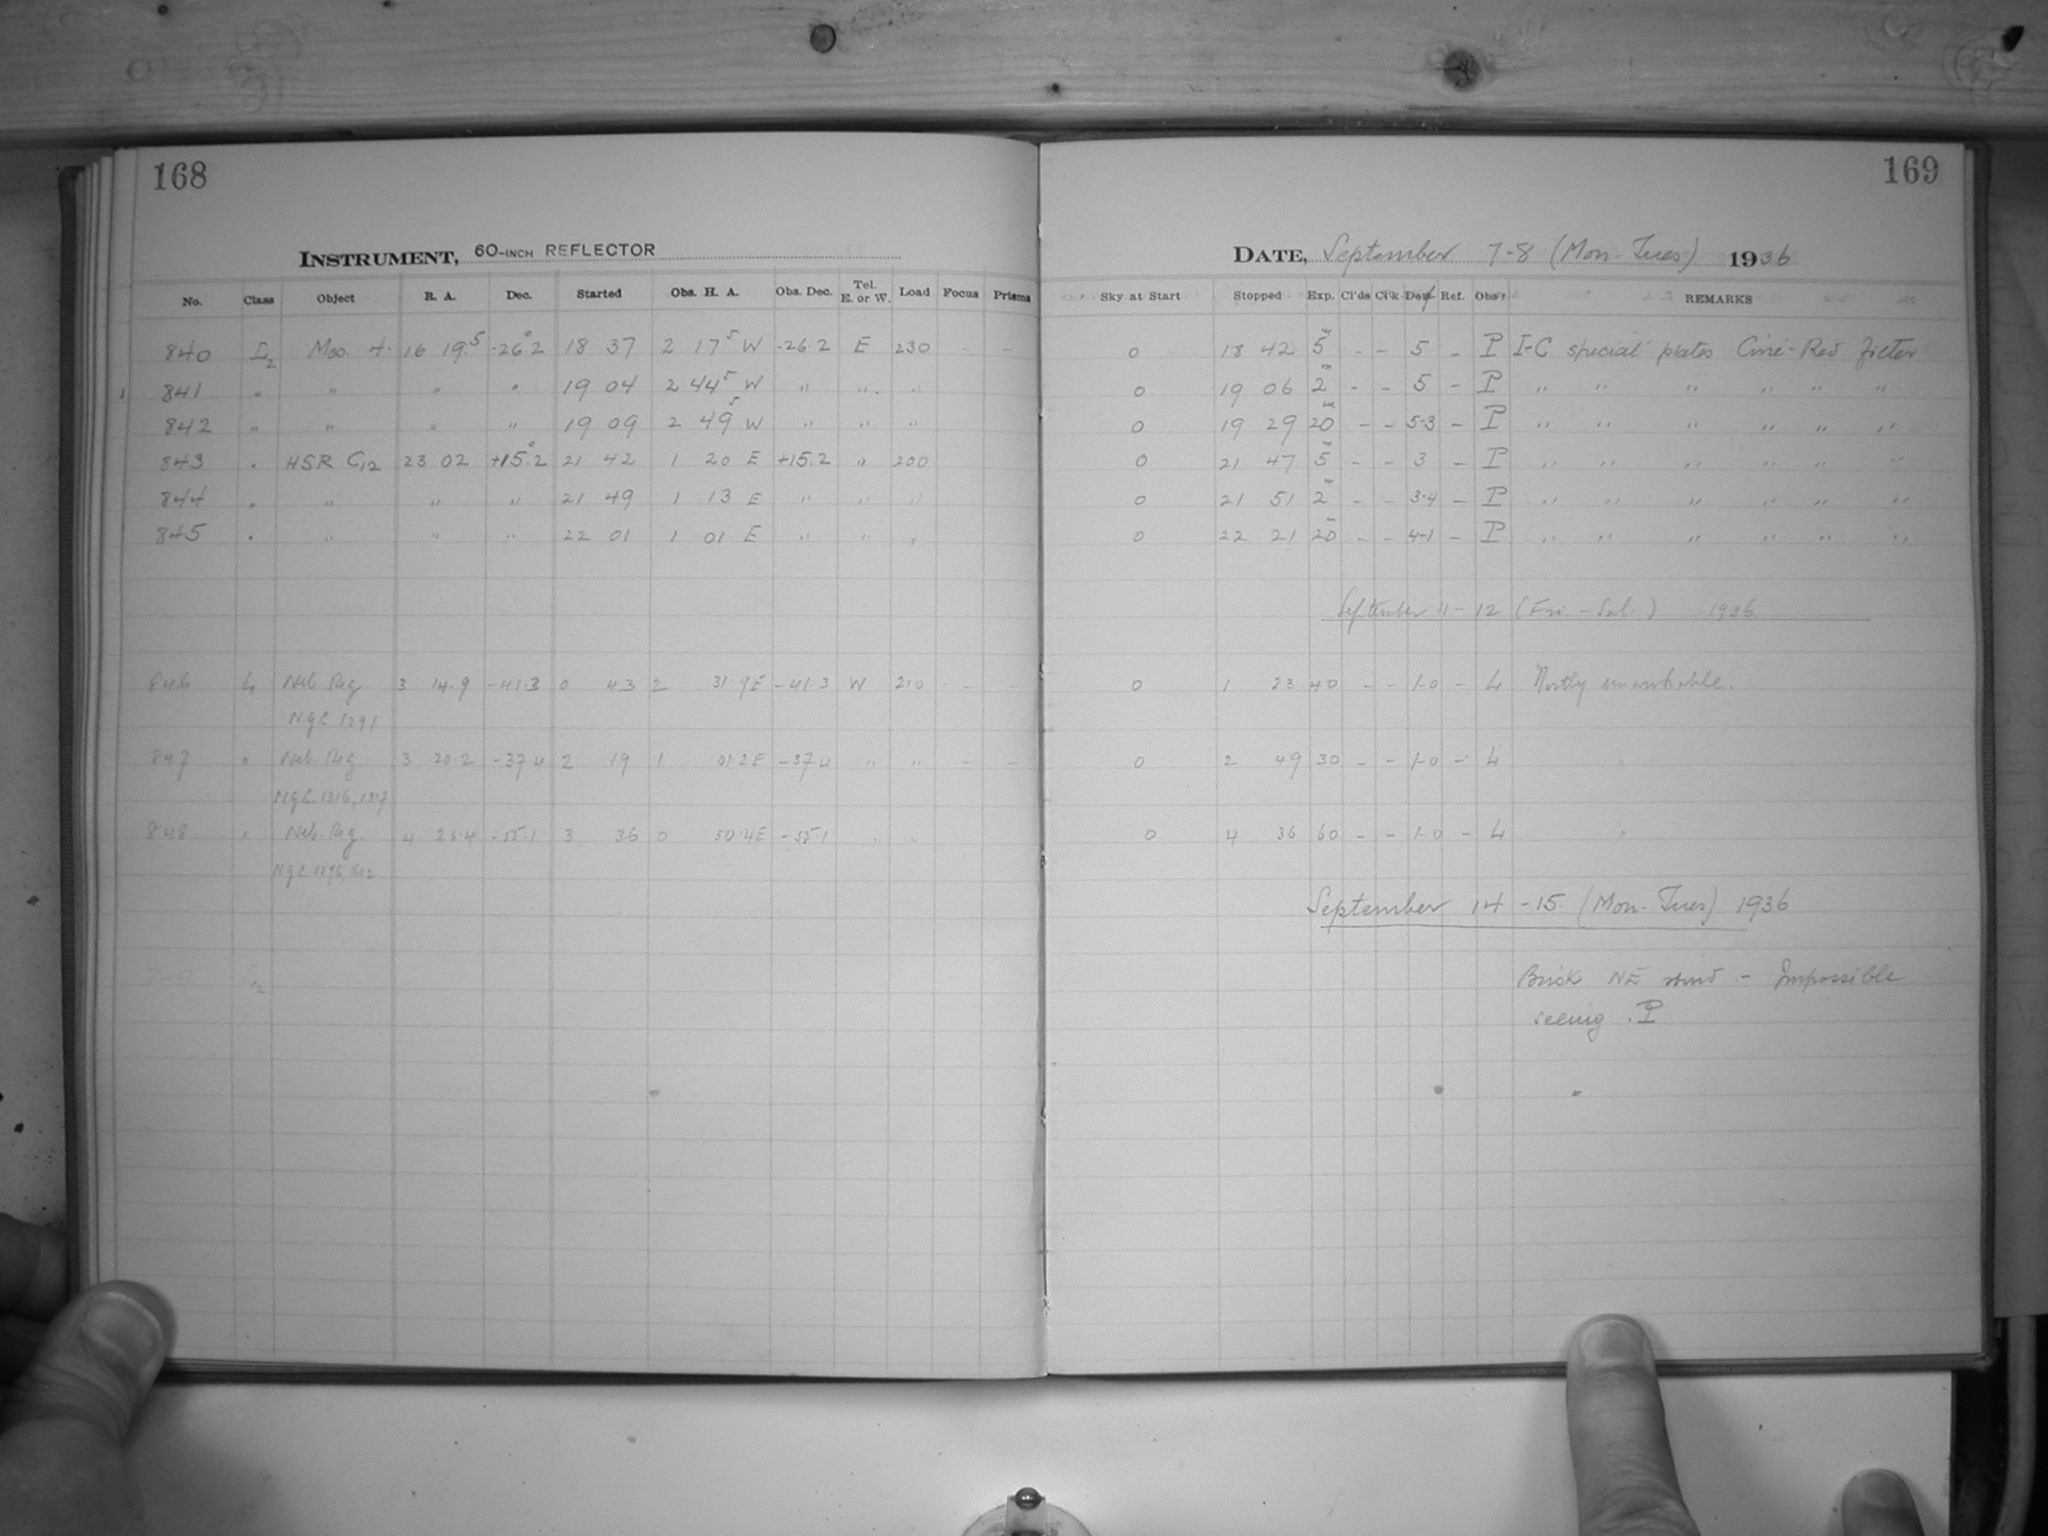 168
INSTRUMENT, 60-INCH REFLECTOR
No. Class Object R. A. Dec. Started Obs. H. A. Obs. Dec. Tel. E. or W. Load Focus Prisms
840 I2 Mess. 4. 16 19.5 -26°2 18 37 2 17.5 W -26.2 E 230 - -
841 " " " " 19 04 2 44.5 W " " "
842 " " " " 19 09 2 49.5 W " " "
843 " HSR C12 23 02 +15°.2 21 42 1 20 E +15.2 " 200
844 " " " " 21 49 1 13 E " " "
845 " " " " 22 01 1 01 E " " "
846 L Neb Reg 3 14.9 -41.3 0 43 2 31.9E -41.3 W 210 - - -
N.g.C. 1291
847 " Neb Reg 3 20.2 -37.4 2 19 1 01.2E -37.4 " " - -
N.g.C. 1316, 1317
848 " Neb. Reg. 4 26.4 -55.1 3 36 0 50.4E -55.1 " "
N.g.C. 1596, 1602
169
DATE, September 7-8 (Mon-Tues) 1936
Sky at Start Stopped Exp. Cl'ds Cl'k Def Ref. Obs'r REMARKS
0 18 42 5m - - 5 - P I-C special plates Ciné-Red filter
0 19 06 2m - - 5 - P " " " " " "
0 19 29 20m - - 5-3 - P " " " " " "
0 21 47 5m - - 3 - P " " " " " "
0 21 51 2m - - 3-4 - P " " " " " "
0 22 21 20m - - 4-1 - P " " " " " "
September 11-12 (Fri.-Sat.) 1936
0 1 23 40 - - 1-0 - L Mostly unworkable.
0 2 49 30 - - 1-0 - L "
0 4 36 60 - - 1-0 - L "
September 14-15 (Mon-Tues) 1936
Brisk NE wind - Impossible
seeing. P